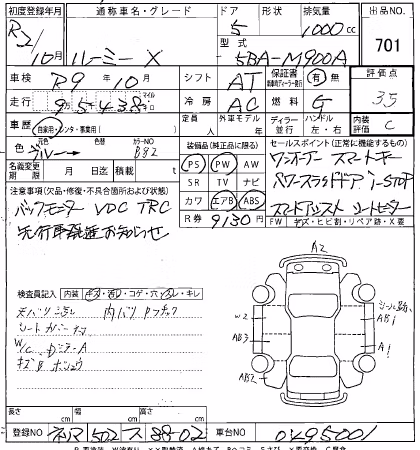 初度登録年月 通称車名・グレード ドア 形状 排気量 出品NO.
R2/10月 ルーミー X 5 1000cc 701
型式 5BA-M900A
車検 R9年10月 シフト AT 保証書 有 無 評価点
走行 95438 km マイル 冷房 AC 燃料 G 3.5
車歴 自家用・レンタ・事業用( ) 定員 人 外車モデル 年 ディーラー 並行 ハンドル 左・右 内装 C
色 元色 ブルー 色替 カラーNO B82 装備品(純正品に限る) セールスポイント(正常に機能するもの)
名義変更期限 月 日 積載 t PS PW AW ワンオーナー スマートキー
SR TV ナビ パワースライドドア i-STOP
注意事項(欠品・修復・不具合箇所および状態) カワ エアB ABS スマートアシスト シートヒーター
バックモニター VDC TRC R券 9130円 FW キズ・ヒビ割・リペア跡・X要
先行車発進お知らせ
A2
検査員記入 内装 キズ・汚レ・コゲ・穴・スレ・キレ
天バリ 内バリ
シートカバー
W/C
キズ
W2 AB1
AB3 A1
AB2
長さ cm 幅 cm 高さ cm
登録NO 502 ス 88-02 車台NO 0495001